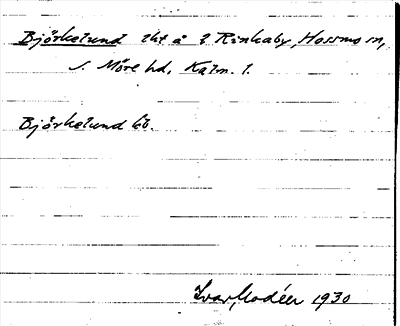 Björkelund lht å 2 Rinkaby, Hossmo sn,
s. Möre hd, Kalm. l.
Björkelund lö.
Ivar Modéer 1930